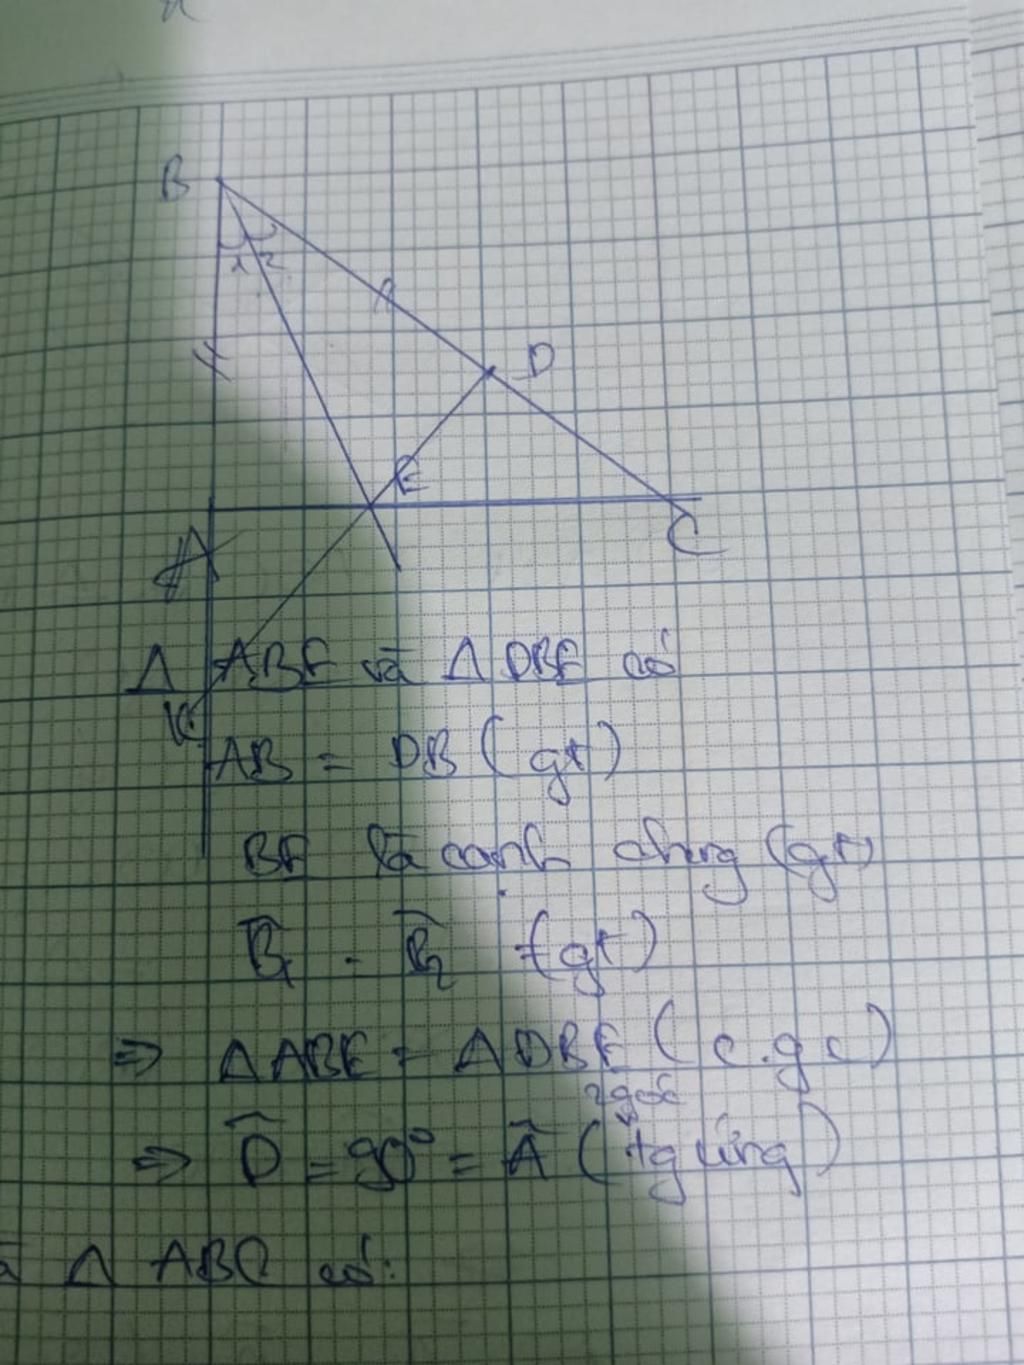 B
1 2
D
E
A
C
Δ ABE và Δ DBE có
K
AB = DB (gt)
BE là cạnh chung (gt)
B̂1 = B̂2 (gt)
=> ΔABE = ΔDBE (c.g.c)
2 góc
=> D̂ = 90° = Â (tg ứng)
Δ ABC có: